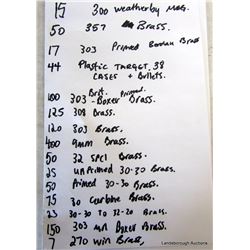 15 300 Weatherby Mag.
50 357 Brass.
17 303 Primed Berdan Brass
44 Plastic TARGET .38
CASES + Bullets.
100 303 Brit. Primed.
-Boxer Brass.
125 308 Brass.
120 303 Brass.
400 9mm Brass.
50 32 SPCl Brass.
25 unPrimed 30-30 Brass.
50 Primed 30-30 Brass.
75 30 Carbine Brass.
25 30-30 To 32-20 Brass.
150 303 Brass.
7 270 Win Brass,
Landsborough Auctions